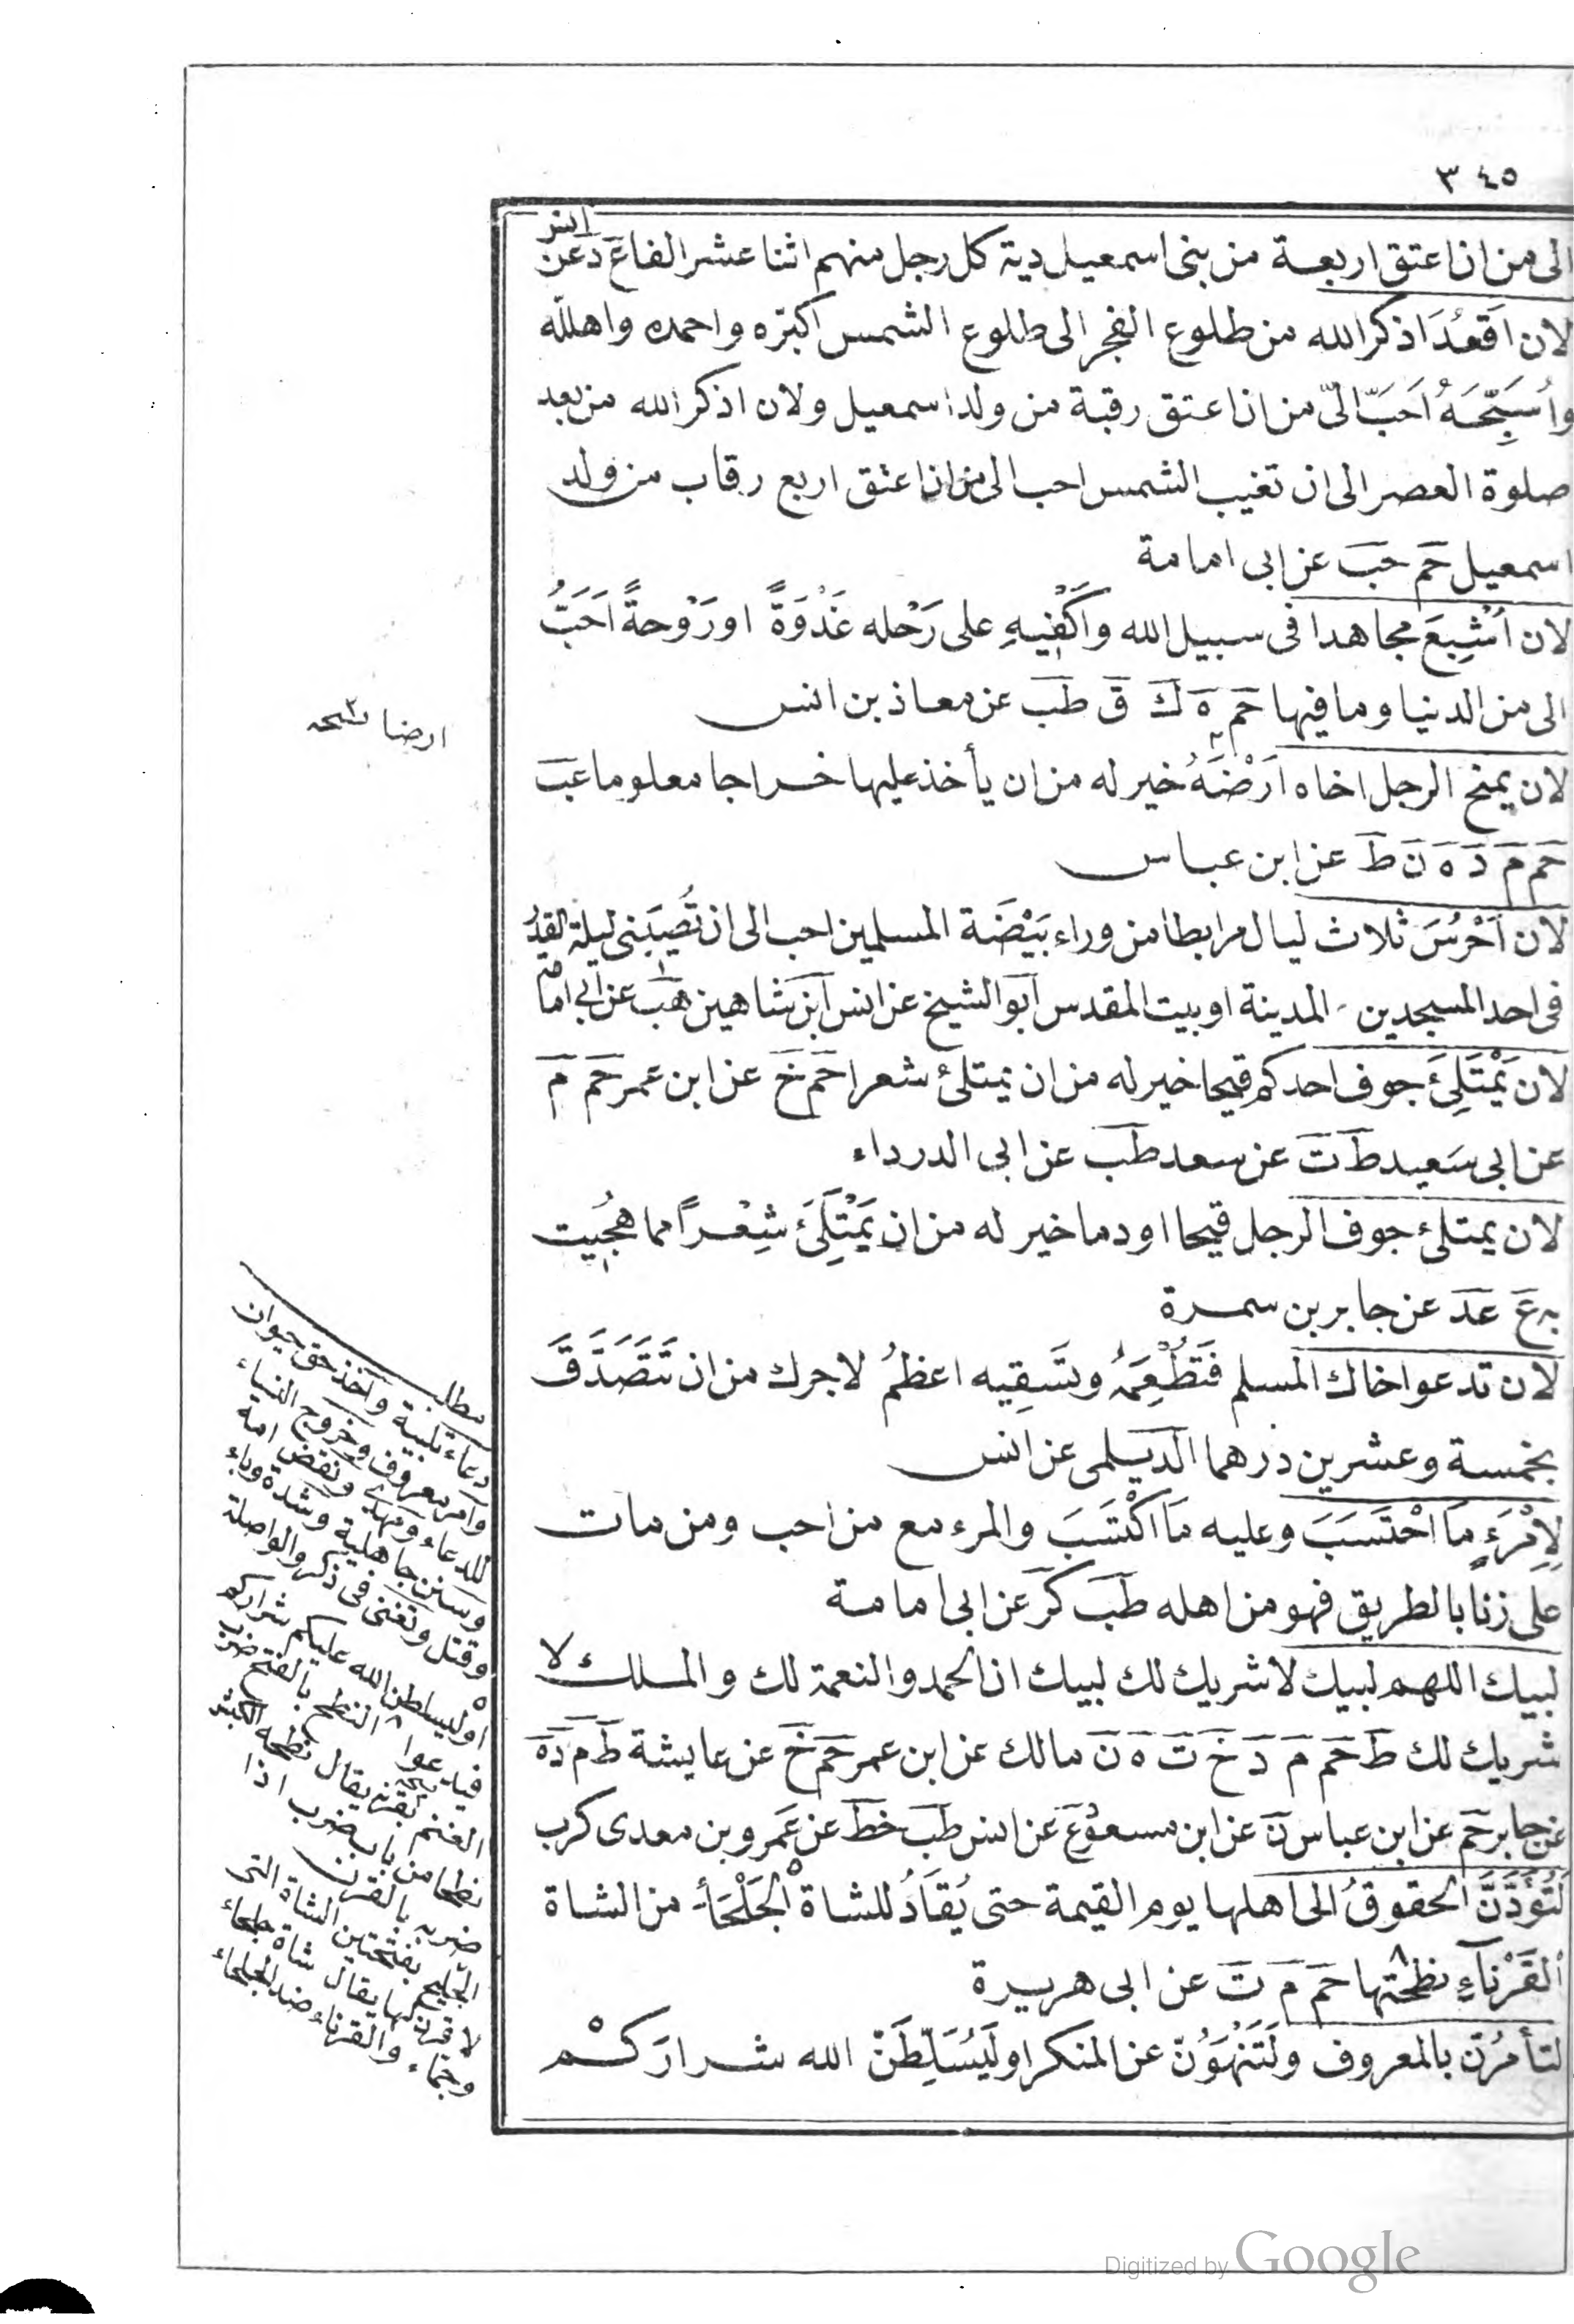 ٣٤٥
الى من ان اعتق اربعة من بنى اسمعيل دية كل رجل منهم اثنا عشر الفا ع د عن انس
لان اَقعُدَ اذكر الله من طلوع الفجر الى طلوع الشمس اكبّره واحمده واهلله
واُسَبِّحَهُ اَحَبّ الىّ من ان اعتق رقبة من ولد اسمعيل ولان اذكر الله من بعد
صلوة العصر الى ان تغيب الشمس احب الى من ان اعتق اربع رقاب من ولد
اسمعيل حم حب عن ابى امامة
لان اُشْيِعَ مجاهدا فى سبيل الله واَكْفِيهِ على رَحْله غَدْوَةً او رَوْحةً اَحَبُّ
الى من الدنيا وما فيها حم ه ك ق طب عن معاذ بن انس
لان يمنح الرجل اخاه اَرْضَهُ خير له من ان يأخذ عليها خراجا معلوما عب
حم م د ه ن ط عن ابن عباس
لان اَحْرُسَ ثلاث ليال مرابطا من وراء بَيْضَة المسلمين احب الى ان تُصِيبَنى ليلة القدر
فى احد المسجدين المدينة او بيت المقدس ابو الشيخ عن انس ابن شاهين هب عن ابى امامة
لان يَمْتَلِئَ جوف احدكم قيحا خير له من ان يمتلئ شعرا حم خ عن ابن عمر حم م
عن ابى سَعيد ط ت عن سعد طب عن ابى الدرداء
لان يمتلئ جوف الرجل قيحا او دما خير له من ان يَمْتَلِئَ شِعْراً مما هُجُيت
به ع عد عن جابر بن سمرة
لان تدعو اخاك المسلم فَتُطْعِمَهُ وتَسقِيه اعظمُ لاجرك من ان تَتَصَدَّقَ
بخمسة وعشرين درهما الديلمى عن انس
لِامْرَءٍ مَا احْتَسَبَ وعليه مَا اكْتَسَبَ والمرء مع من احب ومن مات
على زنا بالطريق فهو من اهله طب كر عن ابى امامة
لبيك اللهم لبيك لا شريك لك لبيك ان الحمد والنعمة لك والملك لا
شريك لك ط حم م د خ ت ه ن مالك عن ابن عمر حم خ عن عايشة ط م د ه
عن جابر حم عن ابن عباس ن عن ابن مسعود ع عن انس طب خط عن عَمرو بن معدى كرب
لَتُؤَدَّنَّ الحقوقُ الى اهلها يوم القيمة حتى يُقَادُ للشاة الْجَلْحَاء من الشاة
اَلقَرْنَاءِ نطحتها حم م ت عن ابى هريرة
لتأمرُنّ بالمعروف ولَتَنْهَوُنّ عن المنكر او لَيُسَلِّطَنّ الله شرارَكْم
ارضا نسخه
مطلب
دعاء تلبية واخذ حق حيوان
وامر معروف وخروج النساء
للدعاء ونقض امة
وسنن جاهلية وشدة وباء
وقتل وتغنى فى ذكر والواصلة
او ليسلطن الله عليكم شراركم
فيدعوا النطح بالفتح ضرب
الغنم بقرنه يقال نطحه الكبش
نطحا من باب ضرب اذا
ضربه بالقرن
الجلح بفتحتين الشاة التى
لا قرن لها يقال شاة جلحاء
وجماء والقرناء ضد الجلحاء